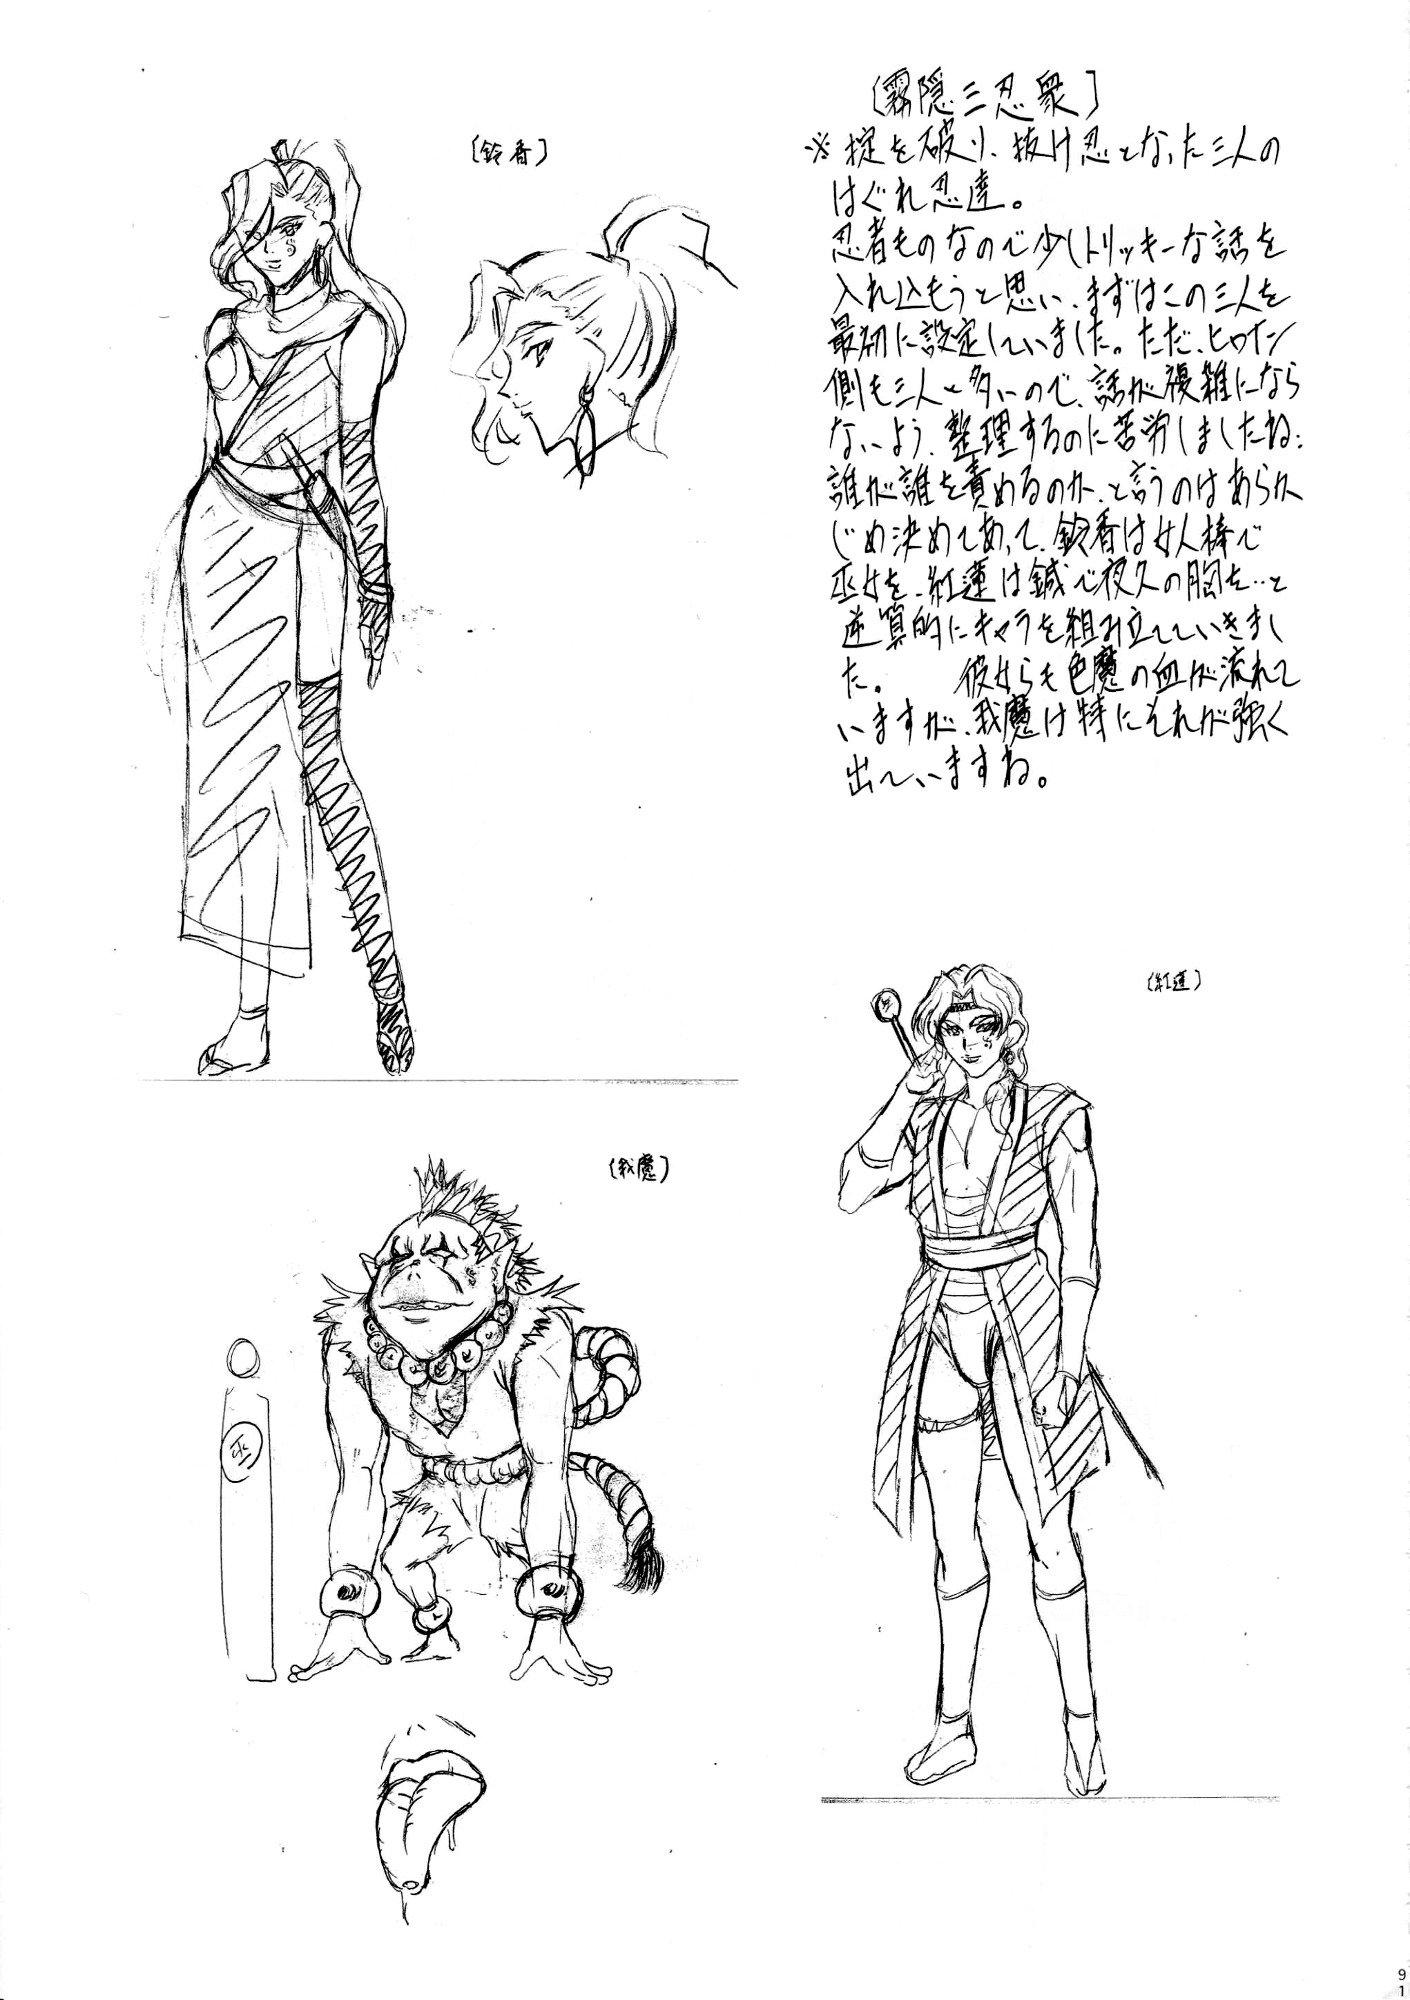 〔霧隠三忍衆〕
※掟を破り、抜け忍となった三人の
はぐれ忍達。
忍者ものなので少しトリッキーな話を
入れ込もうと思い、まずはこの三人を
最初に設定していました。ただ、ヒロイン
側も三人と多いので、話が複雑になら
ないよう、整理するのに苦労しましたね…
誰が誰を責めるのか、と言うのはあらか
じめ決めてあって、鈴香は女人棒で
巫女を、紅蓮は鍼で夜久の胸を…と
逆算的にキャラを組み立てていきまし
た。　彼女らも色魔の血が流れて
いますが、我魔は特にそれが強く
出ていますね。
〔鈴香〕
〔紅蓮〕
〔我魔〕
巫
91